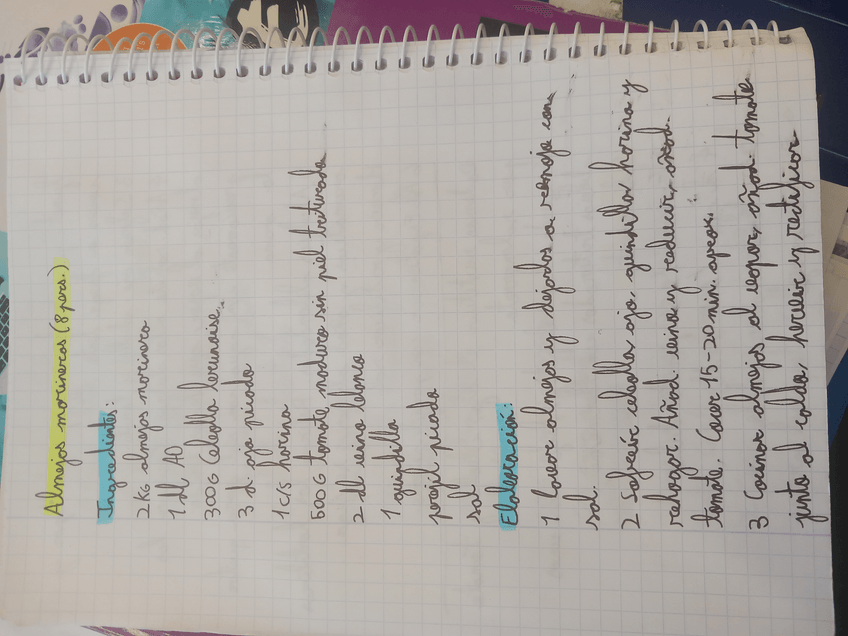 Almejas marineras (8 pers.)
Ingredientes:
2 KG almejas marinera
1 dl AO
300 G Cebolla brunoise
3 d. ajo picado
1 c/s harina
500 G tomate maduro sin piel triturado
2 dl vino blanco
1 guindilla
perejil picado
sal
Elaboración:
1 Lavar almejas y dejarlas a remojo con
sal.
2 Sofreír cebolla ajo, guindilla harina y
rehogar. Añad. vino y reducir, añad.
tomate. Cocer 15-20 min. aprox.
3 Cocinar almejas al vapor, añad. tomate
junto al caldo, hervir y rectificar